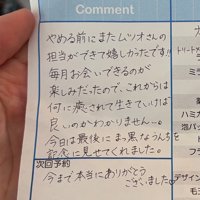 Comment
やめる前にまたムツオさんの
担当ができて嬉しかったです!!
毎月お会いできるのが
楽しみだったので、これからは
何に癒されて生きていけば
良いのかわかりません…。
今日は最後にまっ黒なうんちを
記念に見せてくれました。
次回予約
今まで本当にありがとう
ございました
トリートメ
ミネ
薬
ハーブ
泡パッ
デザイン
毛玉